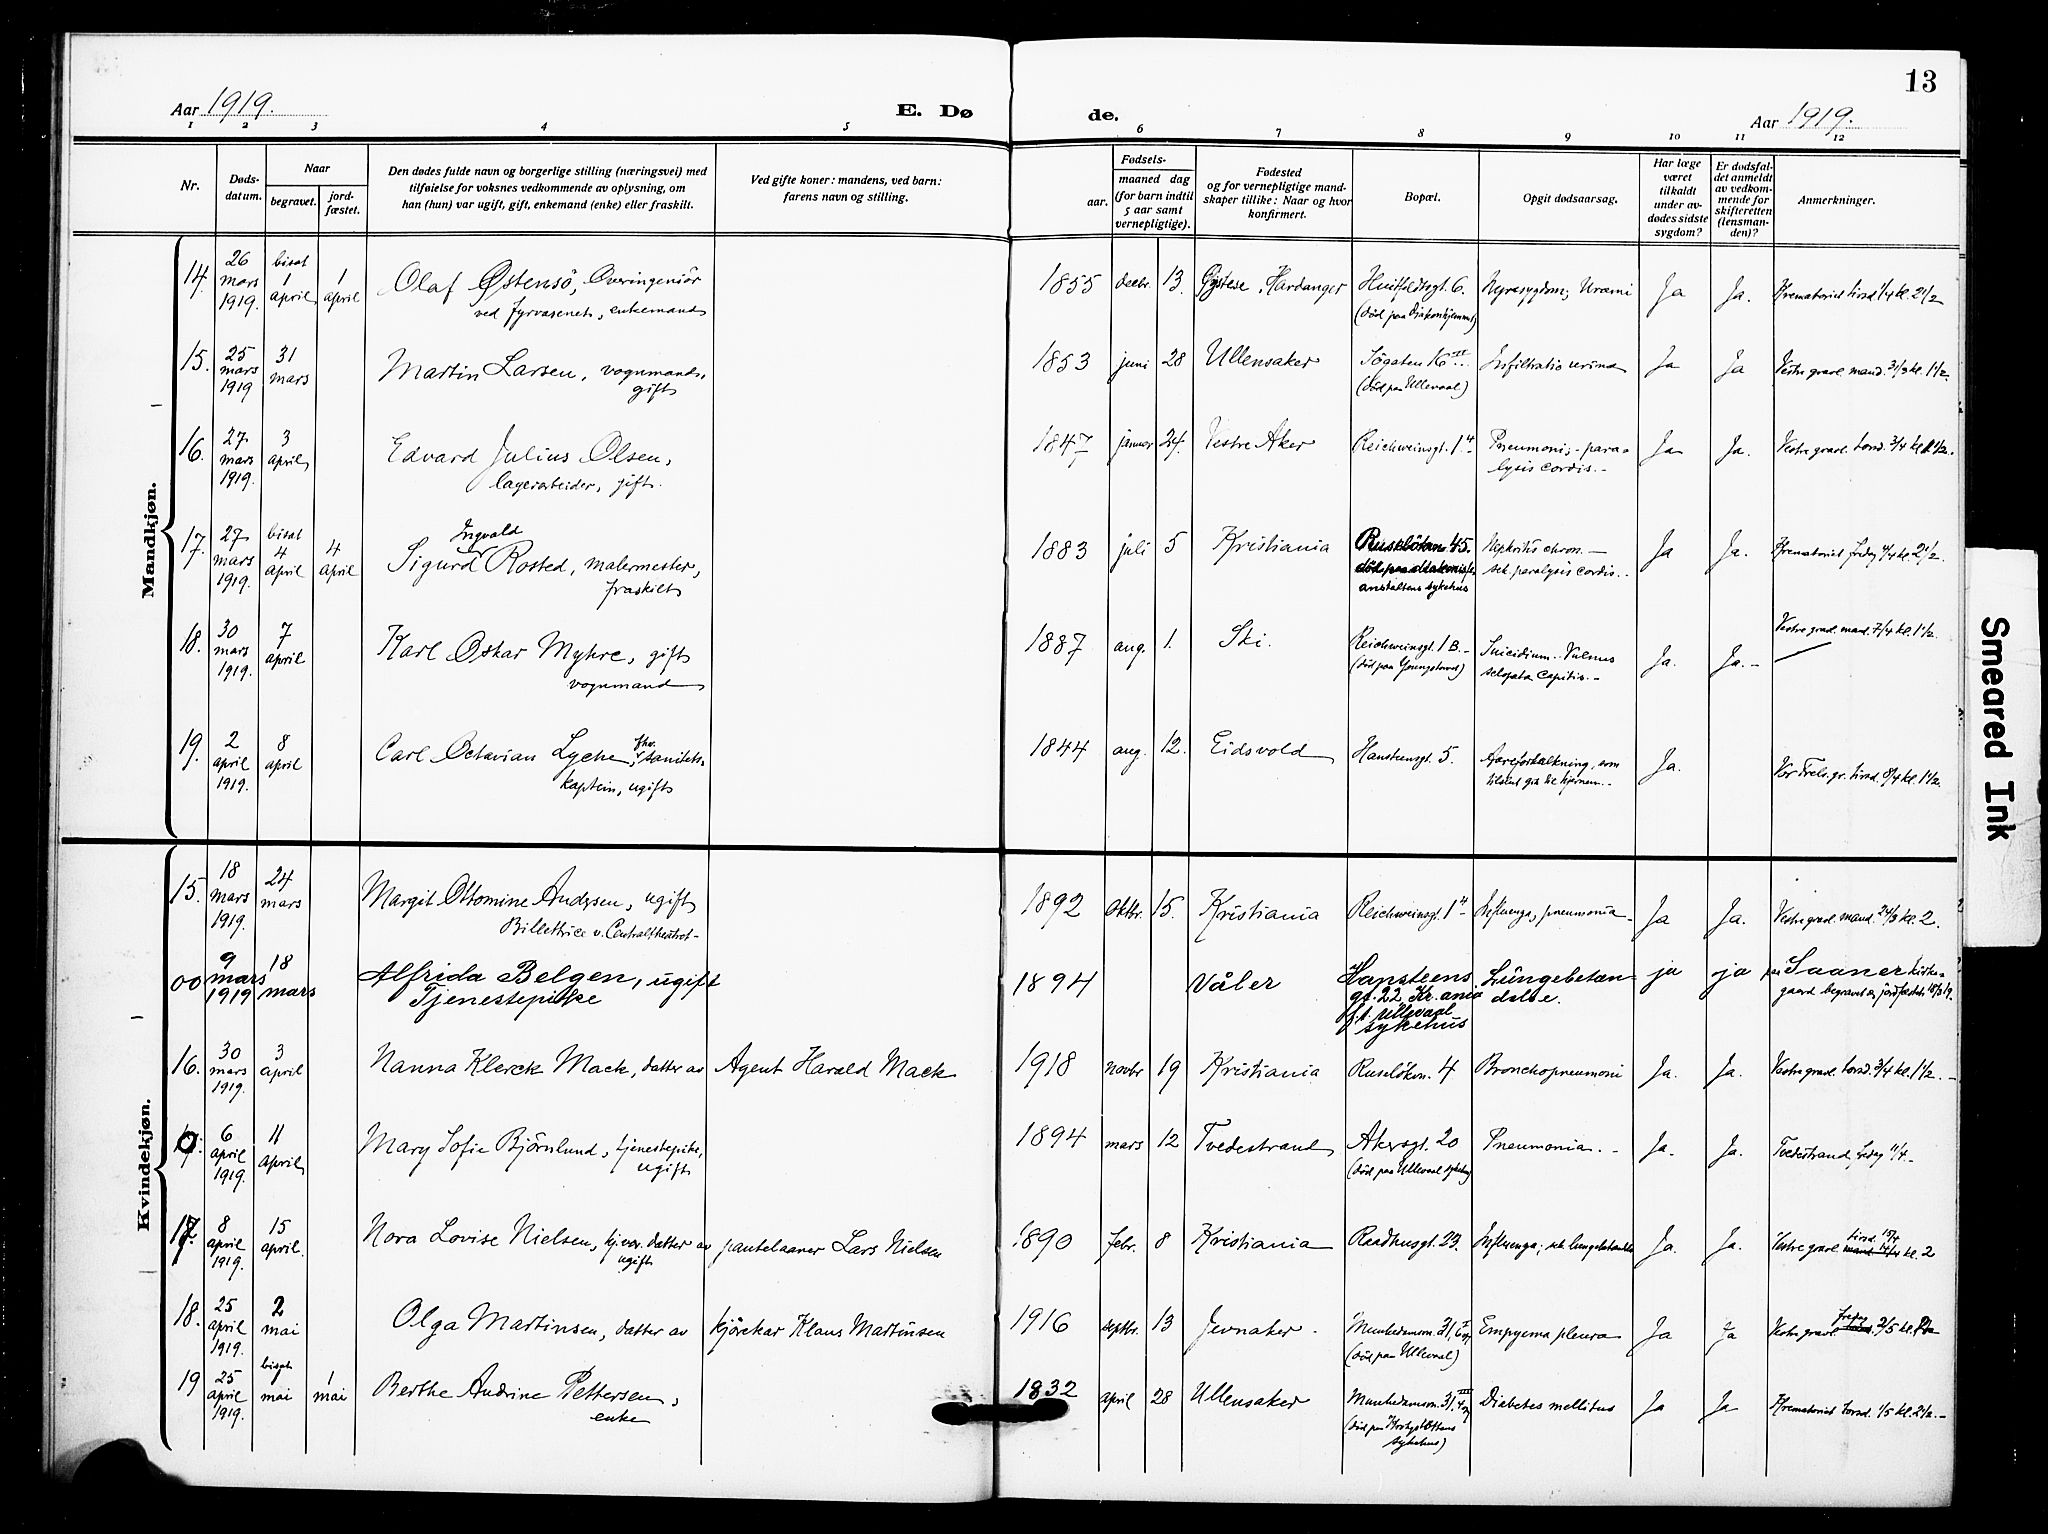 13
Aar 1919.
E. Dø
de.
Aar 1919.
1 2 3 4 5 6 7 8 9 10 11 12
Nr.
Døds-
datum.
Naar
begravet.
jord-
fæstet.
Den dødes fulde navn og borgerlige stilling (næringsvei) med
tilføielse for voksnes vedkommende av oplysning, om
han (hun) var ugift, gift, enkemand (enke) eller fraskilt.
Ved gifte koner: mandens, ved barn:
farens navn og stilling.
Fødsels-
aar.
maaned dag
(for barn indtil
5 aar samt
vernepligtige).
Fødested
og for vernepligtige mand-
skaper tillike: Naar og hvor
konfirmert.
Bopæl.
Opgit dødsaarsag.
Har læge
været
tilkaldt
under av-
dødes sidste
sygdom?
Er dødsfal-
det anmeldt
av vedkom-
mende for
skifteretten
(lensman-
den)?
Anmerkninger.
Mandkjøn.
14. 26 mars 1919. bisat 1 april 1 april
Olaf Østensö, Overingeniör
ved fyrvæsenet, enkemand
1855 decbr. 13. Øystese, Hardanger
Huitfeldtsgt. 6.
(död paa Diakonhjemmet)
Nyresygdom; Uræmi Ja Ja. Krematoriet tirsd. 1/4 kl. 2 1/2
15. 25 mars 1919 31 mars
Martin Larsen, vognmand,
gift
1853 juni 28 Ullensaker
Sögaten 16 II
(död paa Ullevaal)
Infiltratio urina Ja Ja Vestre gravl. mand. 31/3 kl. 1 1/2.
16. 27 mars 1919. 3 april
Edvard Julius Olsen,
lagerarbeider, gift.
1847 januar 24. Vestre Aker
Reichweinsgt. 1 4
Pneumoni; - para-
lysis cordis. -
Ja Ja. Vestre gravl. torsd. 3/4 kl. 1 1/2.
17. 27 mars 1919. bisat 4 april 4 april
Ingvald
Sigurd Rosted, malermester,
fraskilt
1883 juli 5 Kristiania
Ruselökvn 45.
död paa diakonisse
anstaltens sykehus
Nephritis chron. —
sek. paralysis cordis.
Ja Ja. Krematoriet fredag 4/4 kl. 2 1/2.
18. 30 mars 1919. 7 april
Karl Oskar Myhre, gift
vognmand
1887 aug. 1. Ski.
Reichweinsgt. 1 B. -
(död paa Youngstorvet)
Suicidium. - Vulnus
sclopeta capitis. -
Ja. Ja. - Vestre gravl. mand. 7/4 kl. 1 1/2.
19. 2 april 1919. 8 april
Carl Octavian Lyche, fhv. sanitets-
kaptein, ugift
1844 aug. 12. Eidsvold
Hansteensgt. 5.
Aareforkalkning, som
tilslut gik til hjernen. -
Ja. Vor Frels. gr. tirsd. 8/4 kl. 1 1/2.
Kvindekjøn.
15. 18 mars 1919. 24 mars
Margit Ottomine Andersen, ugift
Billettrice v. Centraltheatret -
1892 oktbr. 15. Kristiania
Reichweinsgt. 1 4
Influenza, pneumonia - Ja Ja. Vestre gravl. mand. 24/3 kl. 2.
00 9 mars 1919 18 mars
Alfrida Belgen, ugift
Tjenestepike
1894 Våler
Hansteens
gt. 22 Kr.ania
f.t. Ullevaal
sykehus
Lungebetæn
delse.
ja ja paa Saaner kirke-
gaard begravet og jordfæstet 18/3 19.
16. 30 mars 1919. 3 april
Nanna Klerck Mack, datter av Agent Harald Mack
1918 novbr 19 Kristiania Ruselökvn. 4 Bronchopneumoni Ja. Ja. Vestre gravl. torsd. 3/4 kl. 1 1/2. -
0 6 april 1919. 11 april
Mary Sofie Björnlund, tjenestepike,
ugift
1894 mars 12 Tvedestrand
Akersgt. 20
(död paa Ullevaal sykehus)
Pneumonia. - Ja. Ja. Tvedestrand fredag 11/4 -
17. 8 april 1919. 15 april.
Nora Lovise Nielsen, hj.vær. datter av pantelaaner Lars Nielsen
ugift
1890 febr. 8 Kristiania Raadhusgt. 23. Influenza; sek. lungebetændelse Ja. Ja. Vestre gravl. tirsd. 15/4 mand. 14/4 kl. 2
18. 25 april 1919. 2 mai
Olga Martinsen, datter av kjörekar Klaus Martinsen
1916 septbr. 13 Jevnaker.
Munkedamsvn. 31,
(död paa Ullevaal)
Empyema pleura Ja Ja Vestre gravl. fredag 2/5 kl.
19 25 april 1919. bisat mai 1 mai
Berthe Andrine Pettersen,
enke
1832 april 28 Ullensaker
Munkedamsvn. 31,
(död paa Krohgstöttens
sykehus)
Diabetes mellitus Ja Ja Krematoriet torsd. 1/5 kl. 2 1/2. -
Smeared Ink